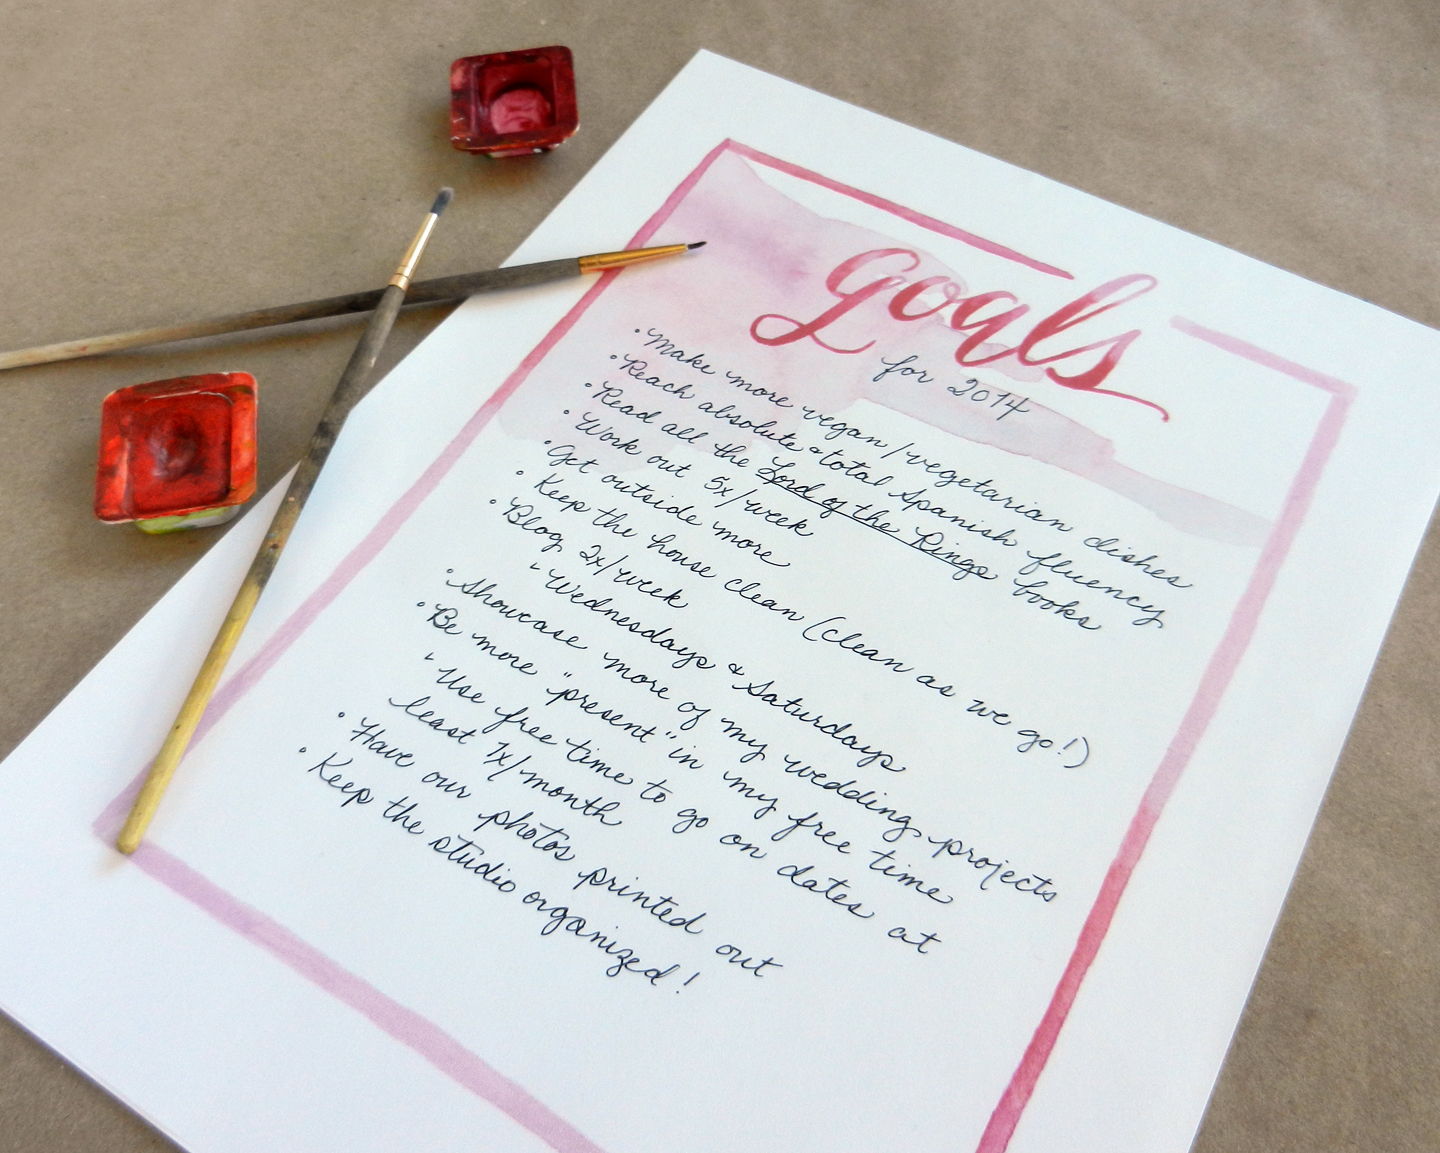 goals
for 2014
• Make more vegan/vegetarian dishes
• Reach absolute & total Spanish fluency
• Read all the Lord of the Rings books
• Work out 5x/week
• Get outside more
• Keep the house clean (clean as we go!)
• Blog 2x/week
- Wednesdays & Saturdays
• Showcase more of my wedding projects
• Be more "present" in my free time
- Use free time to go on dates at
least 1x/month
• Have our photos printed out
• Keep the studio organized!